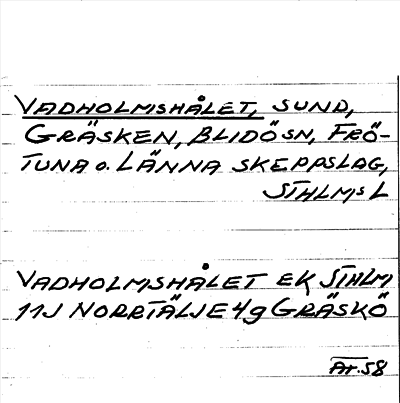 VADHOLMSHÅLET, SUND,
GRÄSKEN, BLIDÖ SN, FRÖ-
TUNA o. LÄNNA SKEPPSLAG,
STHLMS L
VADHOLMSHÅLET EK STHLM
11J NORRTÄLJE 4g GRÄSKÖ
Ar. 58